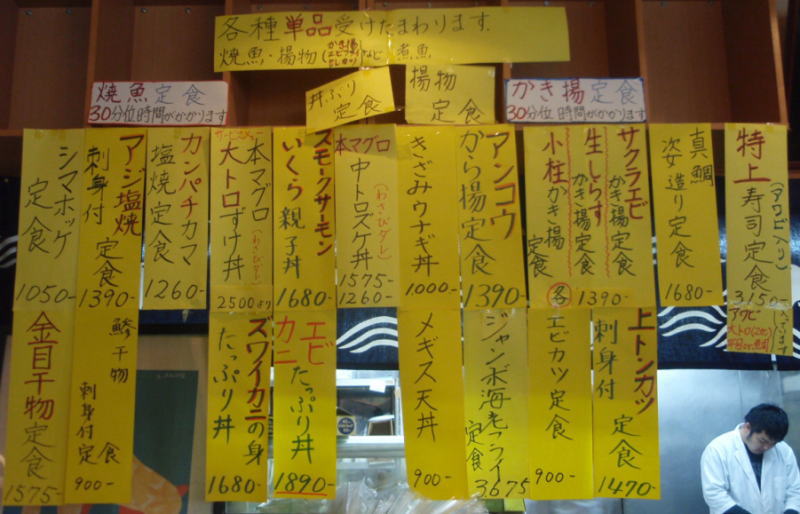 各種単品受けたまわります。
焼魚・揚物(かき揚 エビフライ など) 煮魚
焼魚定食
30分位時間がかかります
丼ぶり
定食
揚物
定食
かき揚定食
30分位時間がかかります
特上寿司定食
(アワビ入り)
3150-
アワビ
大トロ
入ってます
真鯛
姿造り定食
1680-
サクラエビ
かき揚定食
生しらす
かき揚定食
小柱かき揚
定食
各1390-
アンコウ
から揚定食
1390-
きざみウナギ丼
1,000-
本マグロ
中トロズケ丼
(わさびダレ)
1575-
1260-
スモークサーモン
いくら親子丼
1680-
本マグロ
大トロずけ丼
(わさびダレ)
2500より
カンパチカマ
塩焼定食
1260-
アジ塩焼
刺身付定食
1390-
シマホッケ
定食
1050-
上トンカツ
刺身付定食
1470-
エビカツ定食
900-
ジャンボ海老フライ
定食
3,675
メギス天丼
900-
エビ
カニ
たっぷり丼
1890-
ズワイカニの身
たっぷり丼
1680-
鯵干物
刺身付定食
900-
金目干物定食
1575-